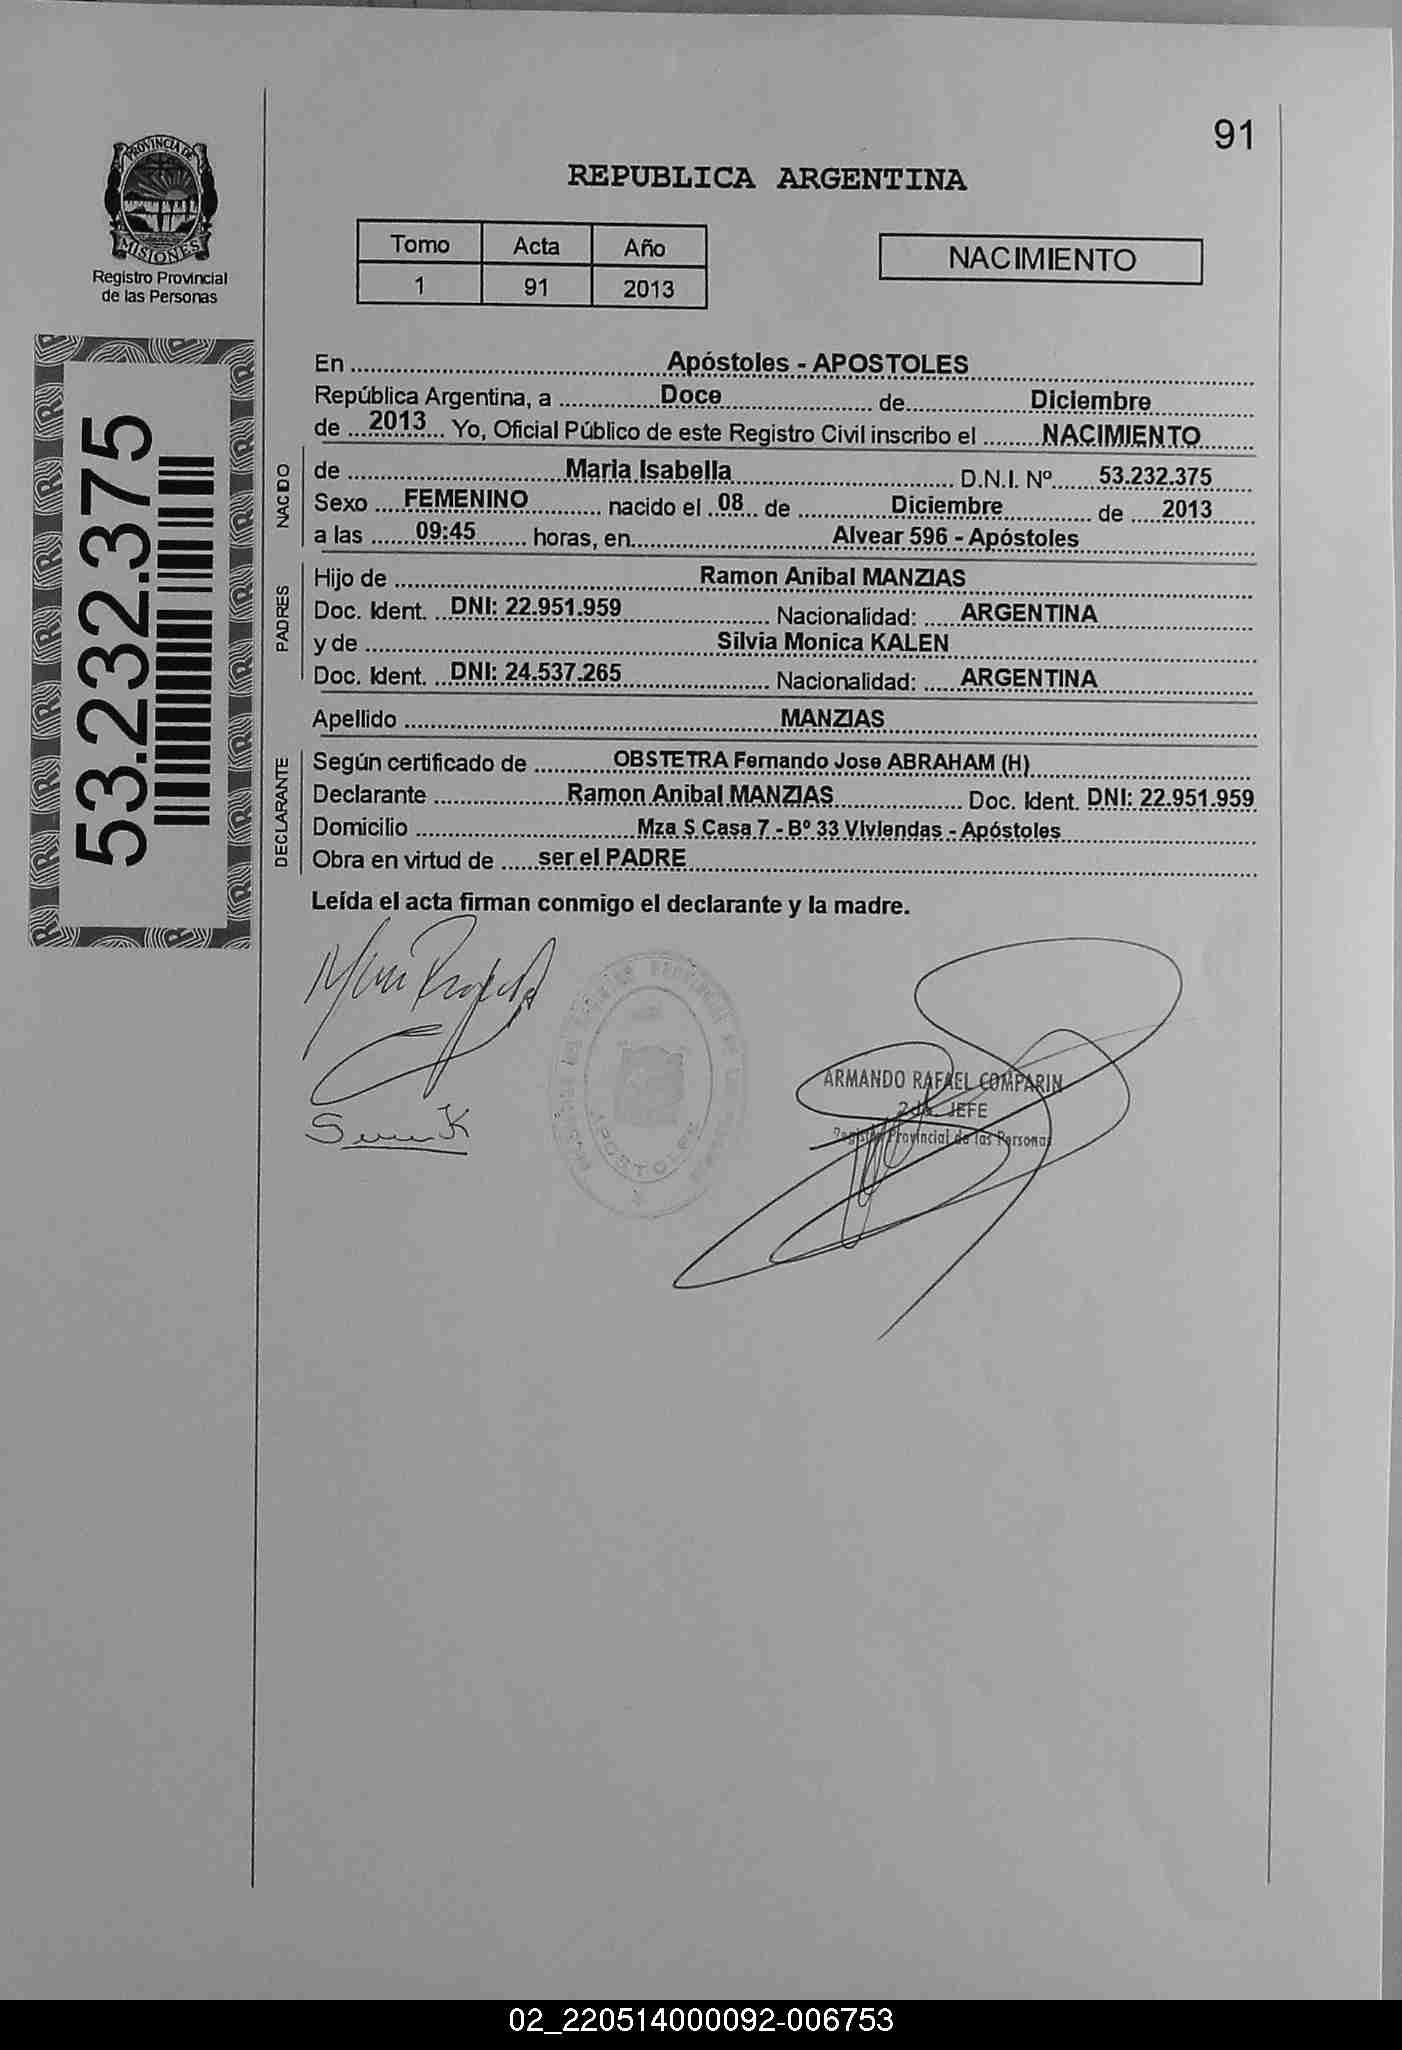 91
PROVINCIA DE
MISIONES
Registro Provincial
de las Personas
REPUBLICA ARGENTINA
Tomo Acta Año
1 91 2013
NACIMIENTO
53.232.375
En Apóstoles - APOSTOLES
República Argentina, a Doce de Diciembre
de 2013 Yo, Oficial Público de este Registro Civil inscribo el NACIMIENTO
NACIDO
de Maria Isabella D.N.I. Nº 53.232.375
Sexo FEMENINO nacido el 08 de Diciembre de 2013
a las 09:45 horas, en Alvear 596 - Apóstoles
PADRES
Hijo de Ramon Anibal MANZIAS
Doc. Ident. DNI: 22.951.959 Nacionalidad: ARGENTINA
y de Silvia Monica KALEN
Doc. Ident. DNI: 24.537.265 Nacionalidad: ARGENTINA
Apellido MANZIAS
DECLARANTE
Según certificado de OBSTETRA Fernando Jose ABRAHAM (H)
Declarante Ramon Anibal MANZIAS Doc. Ident. DNI: 22.951.959
Domicilio Mza S Casa 7 - Bº 33 Viviendas - Apóstoles
Obra en virtud de ser el PADRE
Leída el acta firman conmigo el declarante y la madre.
APOSTOLES
ARMANDO RAFAEL COMPARIN
2do. JEFE
Registro Provincial de las Personas
02_220514000092-006753